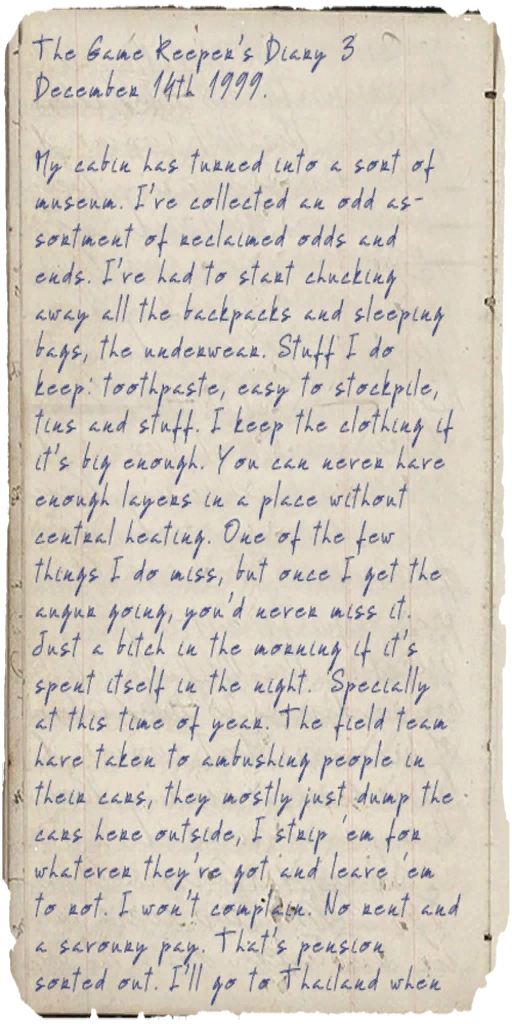 The Game Keeper's Diary 3
December 14th 1999.

My cabin has turned into a sort of
museum. I've collected an odd as-
sortment of reclaimed odds and
ends. I've had to start chucking
away all the backpacks and sleeping
bags, the underwear. Stuff I do
keep: toothpaste, easy to stockpile,
tins and stuff. I keep the clothing if
it's big enough. You can never have
enough layers in a place without
central heating. One of the few
things I do miss, but once I get the
augur going, you'd never miss it.
Just a bitch in the morning if it's
spent itself in the night. 'Specially
at this time of year. The field team
have taken to ambushing people in
their cars, they mostly just dump the
cars here outside, I strip 'em for
whatever they've got and leave 'em
to rot. I won't complain. No rent and
a savoury pay. That's pension
sorted out. I'll go to Thailand when